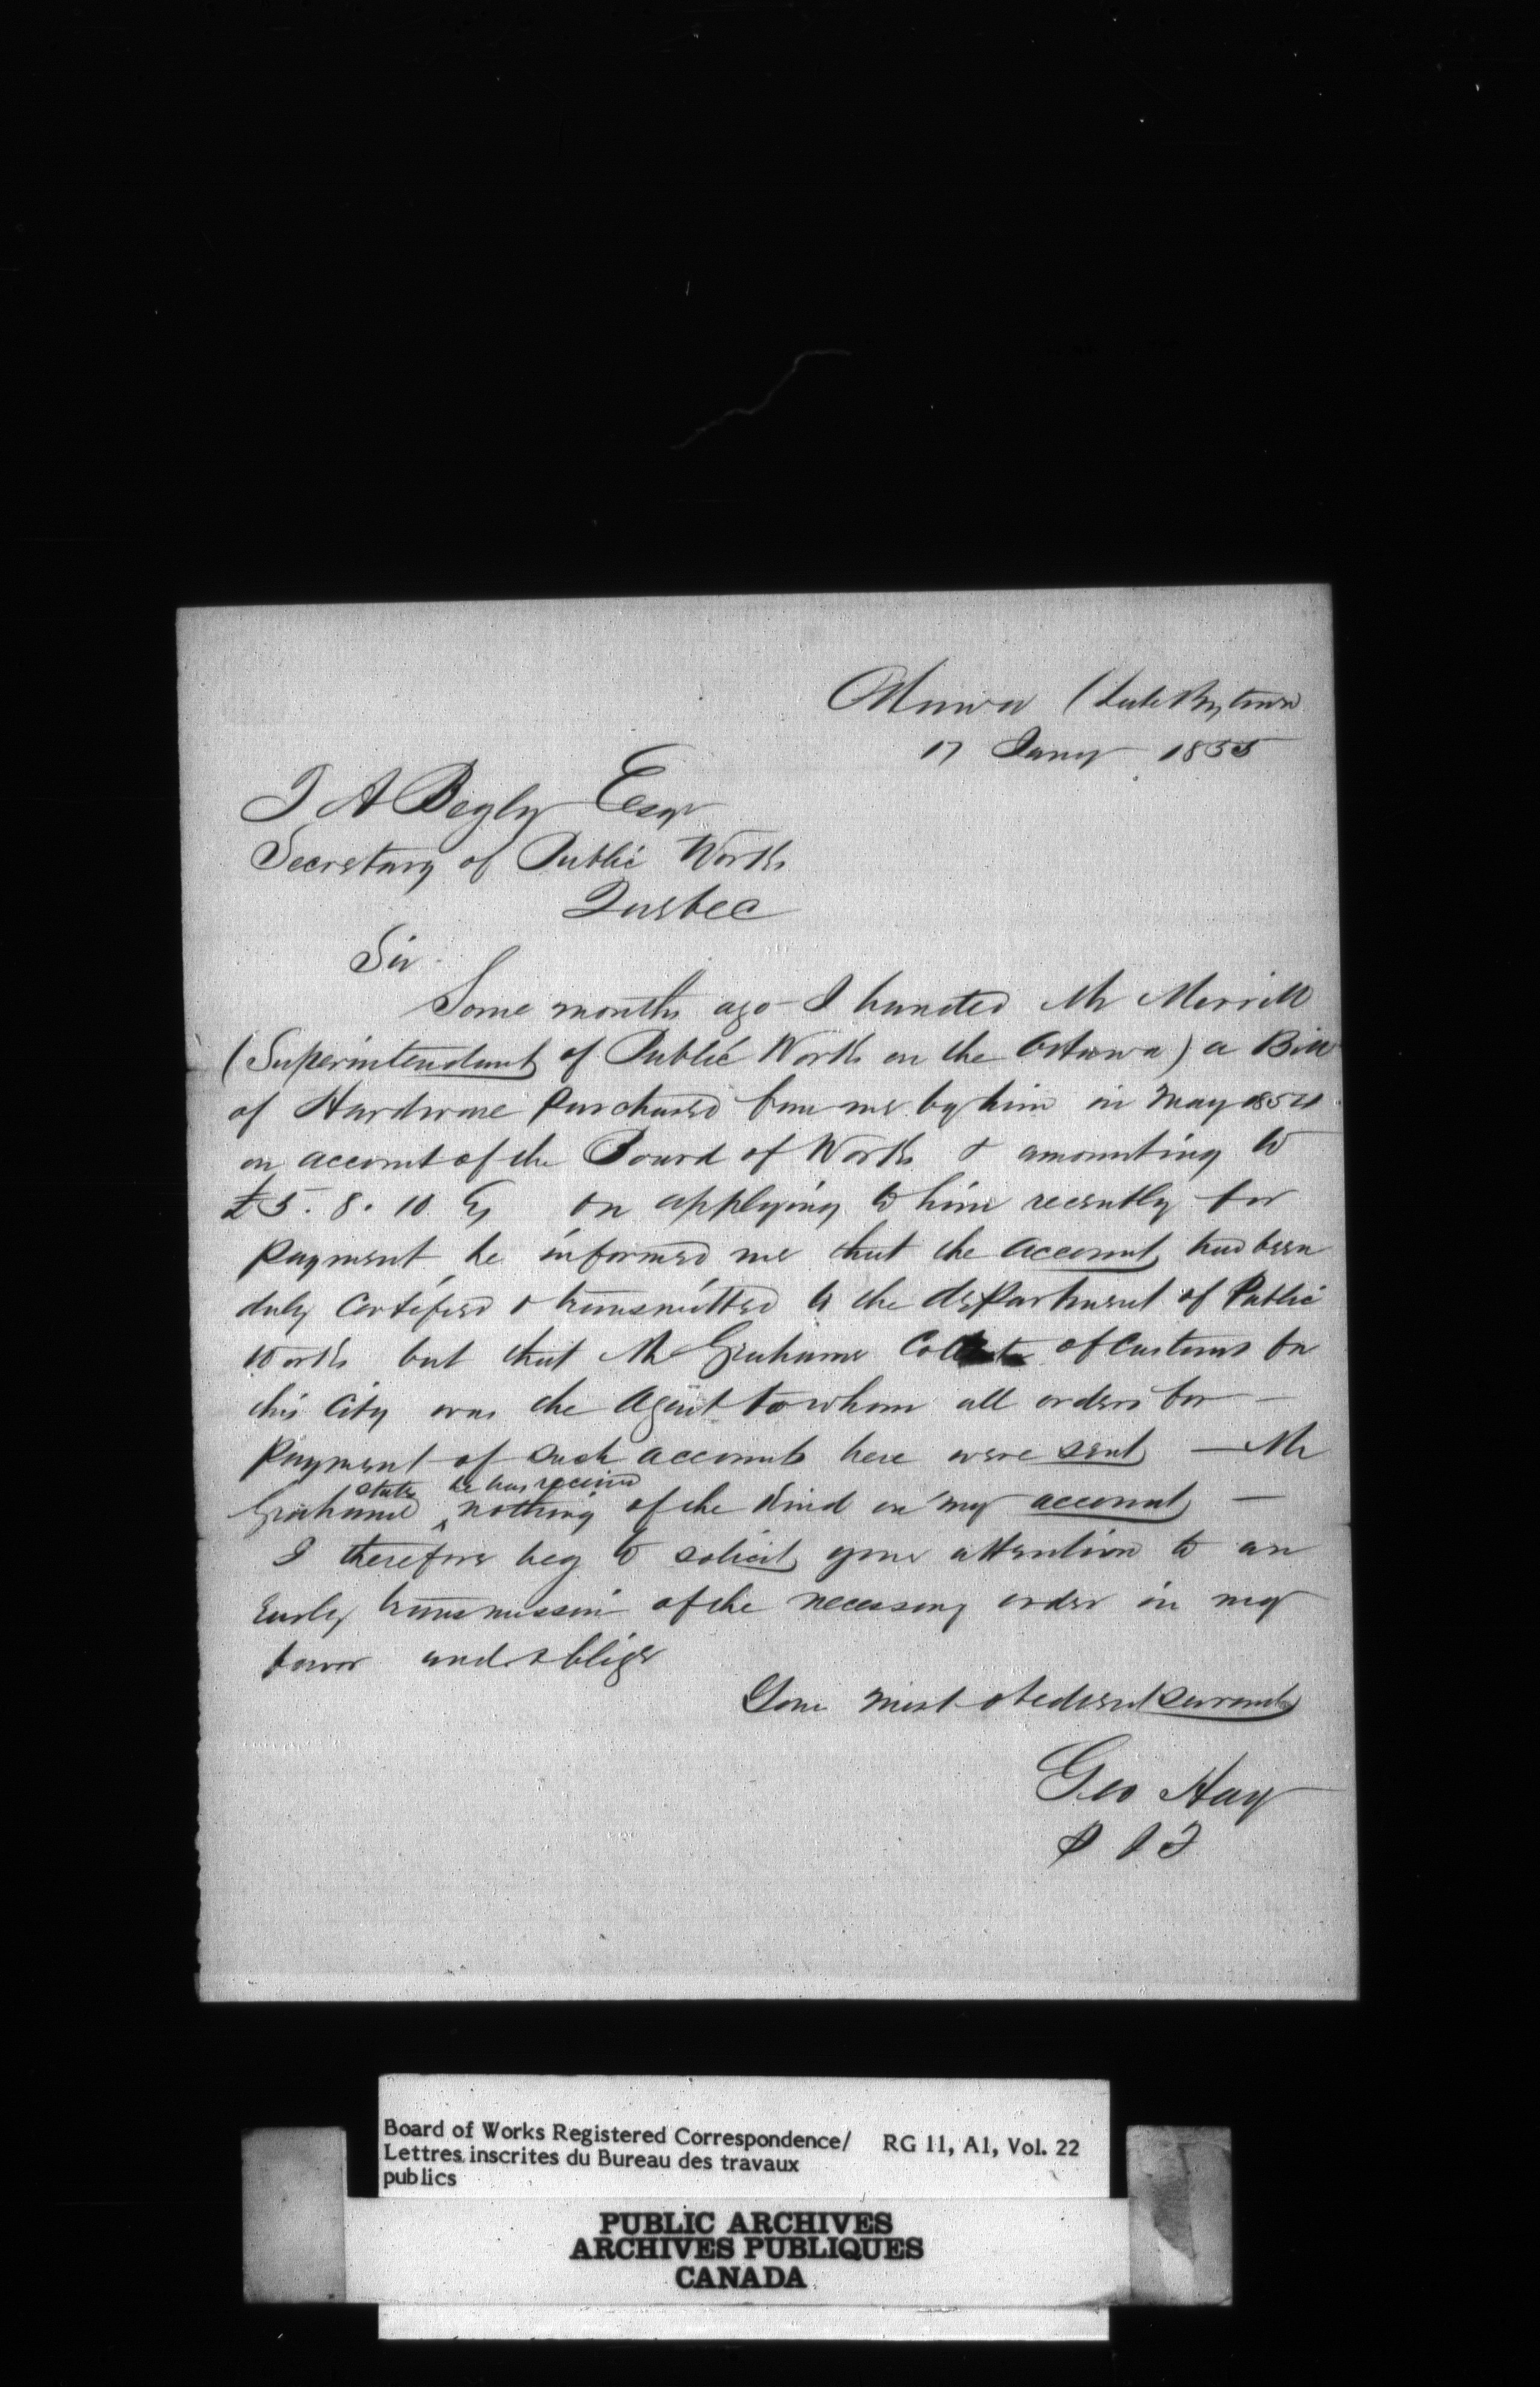 Ottawa (Late Bytown
17 Jany 1855
T A Begly Esqr
Secretary of Public Works
Quebec
Sir
Some months ago I handed Mr Merrill
(Superintendant of Public Works on the Ottawa) a Bill
of Hardware purchased from me by him in May 1854
on account of the Board of Works & amounting to
£5. 8. 10 Cy on applying to him recently for
payment he informed me that the account had been
duly certified & transmitted to the department of Public
Works but that Mr Grahame of Customs for
this City was the Agent to whom all orders for —
payment of such accounts here were sent — Mr
states he has received
Grahame nothing of the kind on my account —
I therefore beg to solicit your attention to an
Early transmission of the necessary order in my
favor and oblige
Your most obedient Servant
Geo Hay
Board of Works Registered Correspondence/ RG 11, A1, Vol. 22
Lettres inscrites du Bureau des travaux
publics
PUBLIC ARCHIVES
ARCHIVES PUBLIQUES
CANADA